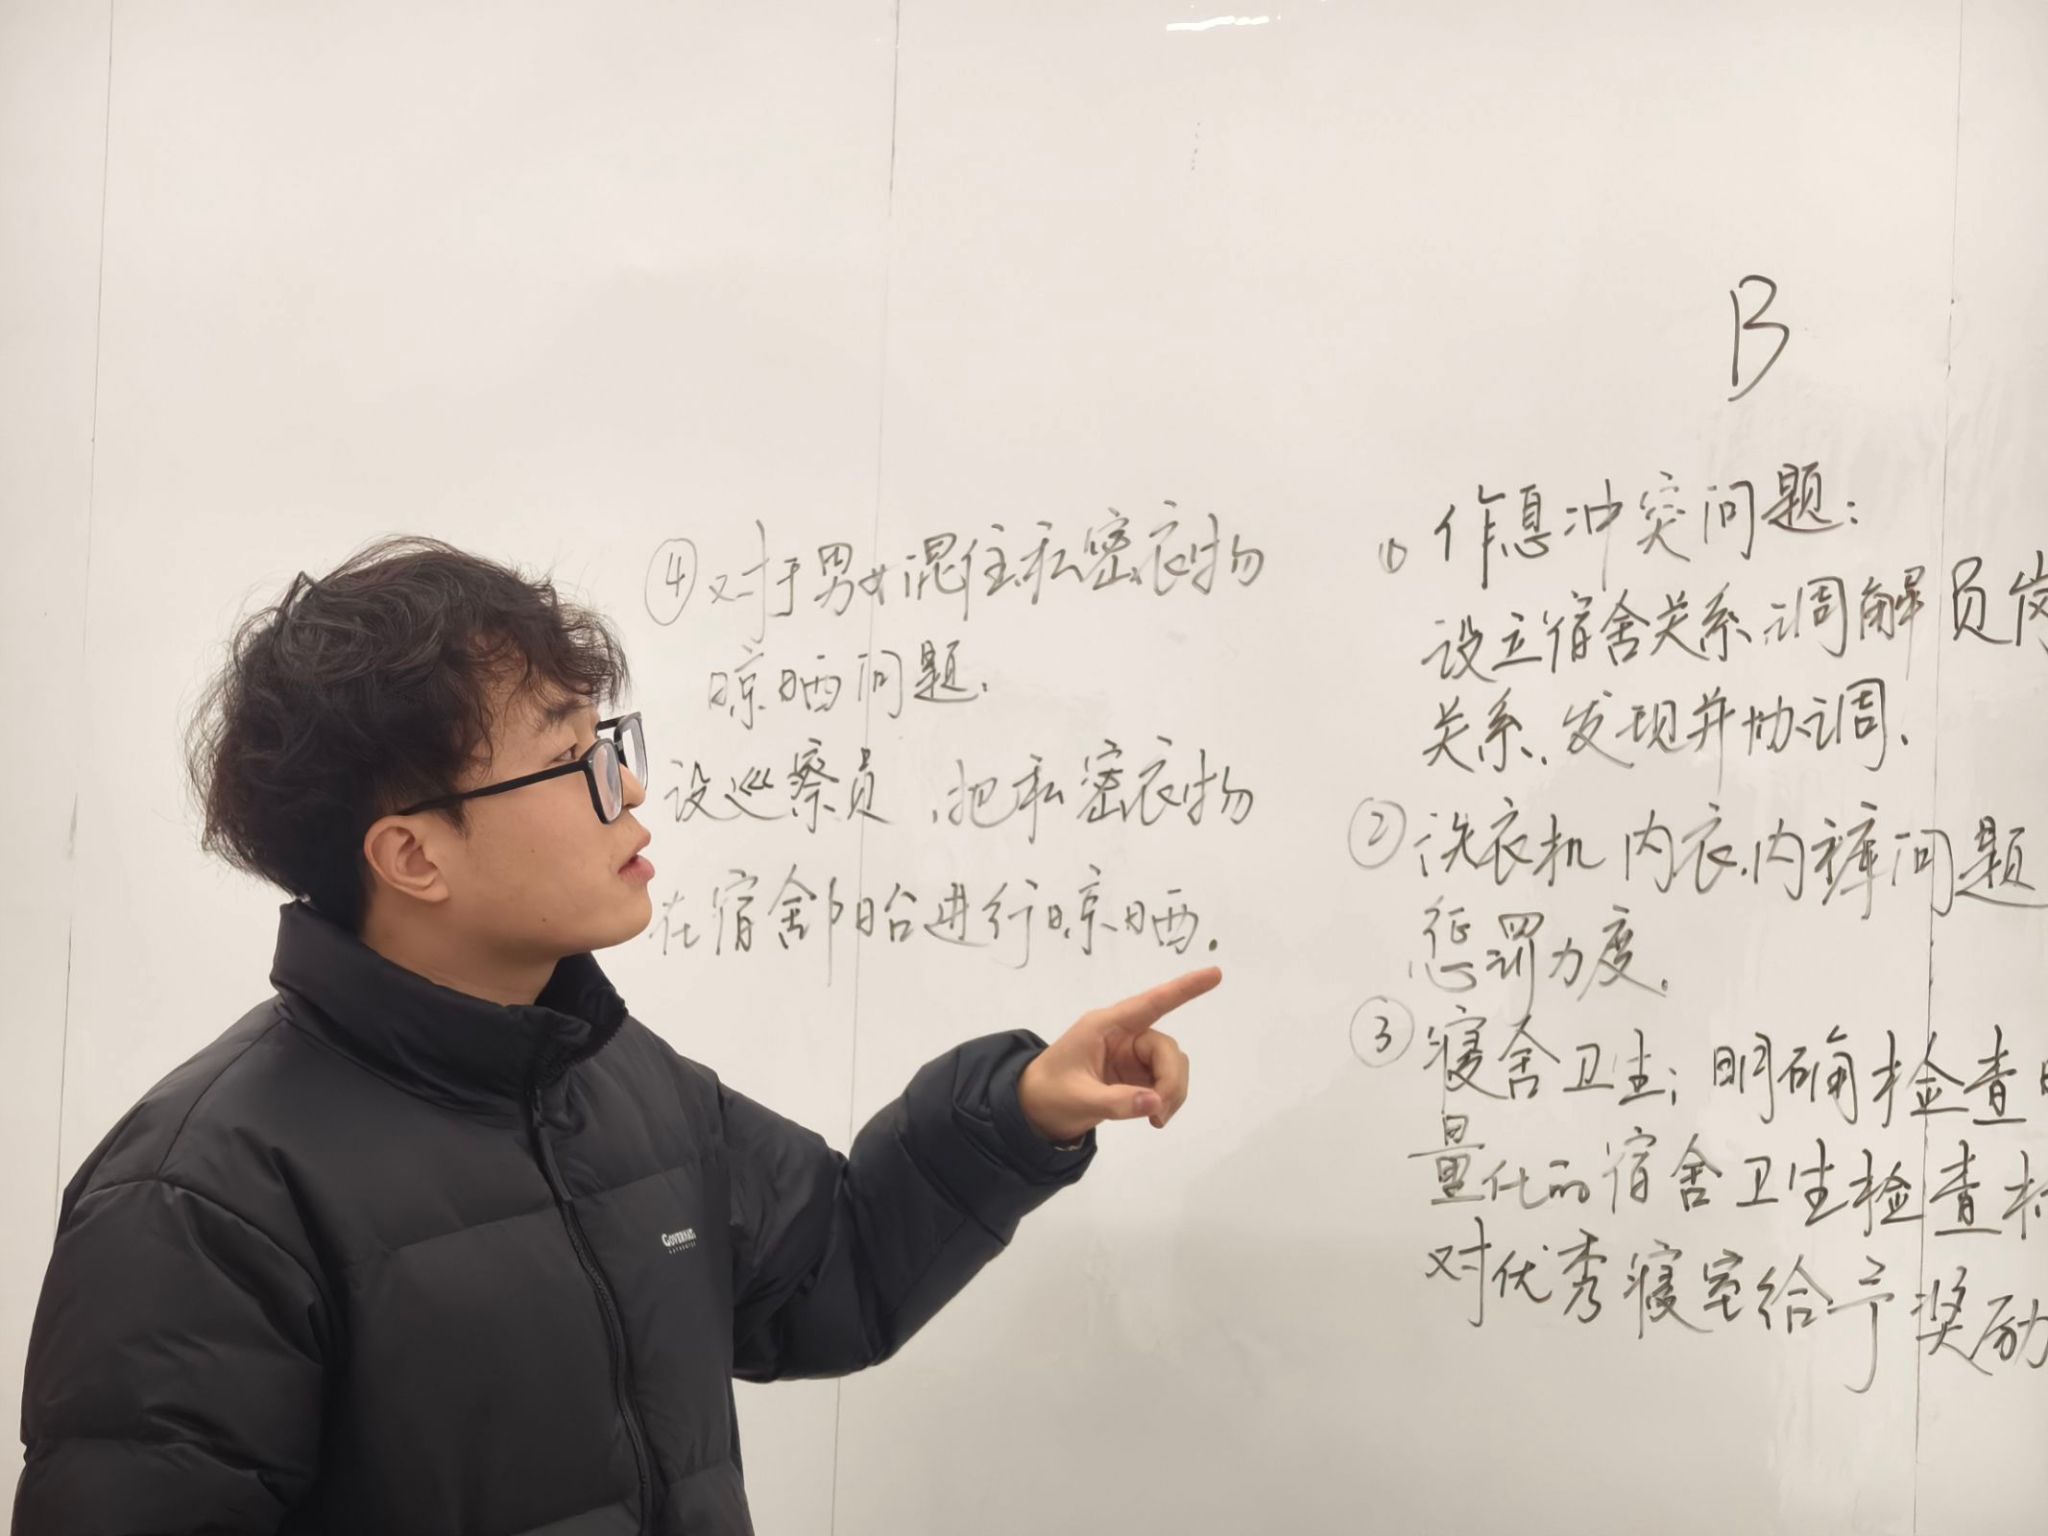 B
① 作息冲突问题：
设立宿舍关系调解员岗
关系、发现并协调.
② 洗衣机 内衣.内裤问题
惩罚力度.
③ 寝舍卫生；明确检查
量化的宿舍卫生检查
对优秀寝室给予奖励
④ 对于男女混住私密衣物
晾晒问题.
设巡察员，把私密衣物
在宿舍阳台进行晾晒.